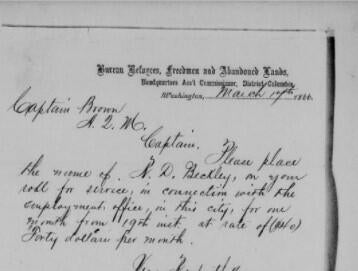 Bureau Refugees, Freedmen and Abandoned Lands,
Headquarters Ass't Commissioner, District Columbia,
Washington, March 17th 1866.
Captain Brown
A. Q. M.
Captain. Please place
the name of N. D. Beckley, on your
roll for service, in connection with the
employment office, in this city, for one
month from 19th inst. at rate of ($40)
Forty dollars per month.
Very